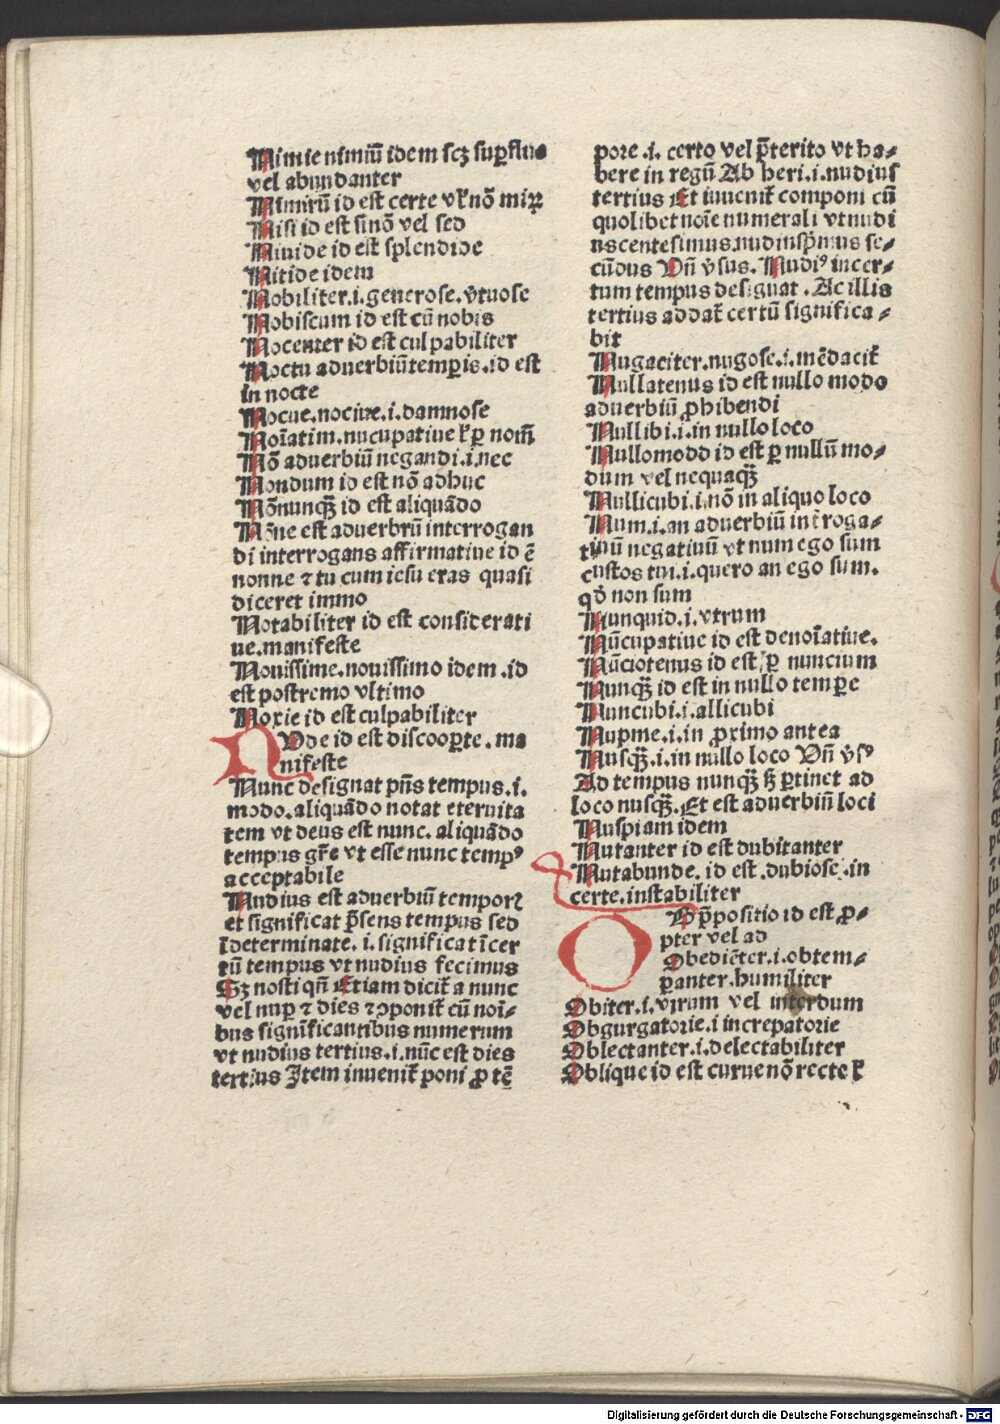 Nimie nimiū idem scꝫ suꝑfluo
vel abundanter
Nimirū id est certe vl̓ nō miꝝ
Nisi id est sinō vel sed
Niuide id est splendide
Nitide idem
Nobiliter .i. generose. v̓tuose
Nobiscum id est cū nobis
Nocenter id est culpabiliter
Noctu aduerbiū temꝑis. id est
in nocte
Nocue. nociue .i. damnose
Noīatim. nūcupatiue l̓ ꝑ nom̄
Nō aduerbiū negandi .i. nec
Nondum id est nō adhuc
Nōnunqꝫ id est aliquādo
Nōne est aduerbiū interrogan
di interrogans affirmatiue id ē
nonne ⁊ tu cum iesu eras quasi
diceret immo
Notabiliter id est considerati
ue. manifeste
Nouissime. nouissimo idem. id
est postremo vltimo
Noxie id est culpabiliter
NVde id est discooꝑte. ma
nifeste
Nunc designat pn̄s tempus .i.
modo. aliquādo notat eternita
tem vt deus est nunc. aliquādo
tempus gr̄e vt esse nunc tempꝰ
acceptabile
Nudius est aduerbiū temporꝭ
et significat p̄sens tempus sed
īdeterminate. i. significat īcer
tū tempus vt nudius fecimus
Sꝫ nosti qn̄ Etiam dicit̄ a nunc
vel nuꝑ ⁊ dies ⁊ ꝯponit̄ cū noī-
bus significantibus numerum
vt nudius tertius .i. nūc est dies
tertius Item inuenit̄ poni ꝓ tē
pore .i. certo vel p̄terito vt ha-
bere in regū Ab heri .i. nudius
tertius Et inuenit̄ componi cū
quolibet noīe numerali vt nudi
uscentesimus. nudiusp̄mus se-
cūdus Vn̄ v̓sus. Nudiꝰ incer-
tum tempus designat. Ac illis
tertius addat̄ certū significa-
bit
Nugaciter. nugose .i. mēdacit̄
Nullatenus id est nullo modo
aduerbiū ꝓhibendi
Nullibi .i. in nullo loco
Nullomodo id est ꝑ nullū mo-
dum vel nequaqꝫ
Nullicubi .i. nō in aliquo loco
Num .i. an aduerbiū int̄roga-
tiuū negatiuū vt num ego sum
custos tui .i. quero an ego sum.
qꝺ non sum
Nunquid .i. vtrum
Nūcupatiue id est denoīatiue.
Nūciotenus id est ꝑ nuncium
Nunqꝫ id est in nullo tempore
Nuncubi .i. allicubi
Nupme .i. in ꝓximo antea
Nusqꝫ .i. in nullo loco Vn̄ v̓sꝰ
Ad tempus nunqꝫ sꝫ ꝑtinet ad
loco nusqꝫ. Et est aduerbiū loci
Nuspiam idem
Nutanter id est dubitanter
Nutabunde. id est. dubiose. in
certe. instabiliter
OB p̄positio id est ꝓ-
pter vel ad
Obediēter .i. obtem-
ꝑanter. humiliter
Obiter .i. vtrum vel interdum
Obgurgatorie .i increpatorie
Oblectanter .i. delectabiliter
Oblique id est curue nō recte l̓
Digitalisierung gefördert durch die Deutsche Forschungsgemeinschaft - DFG